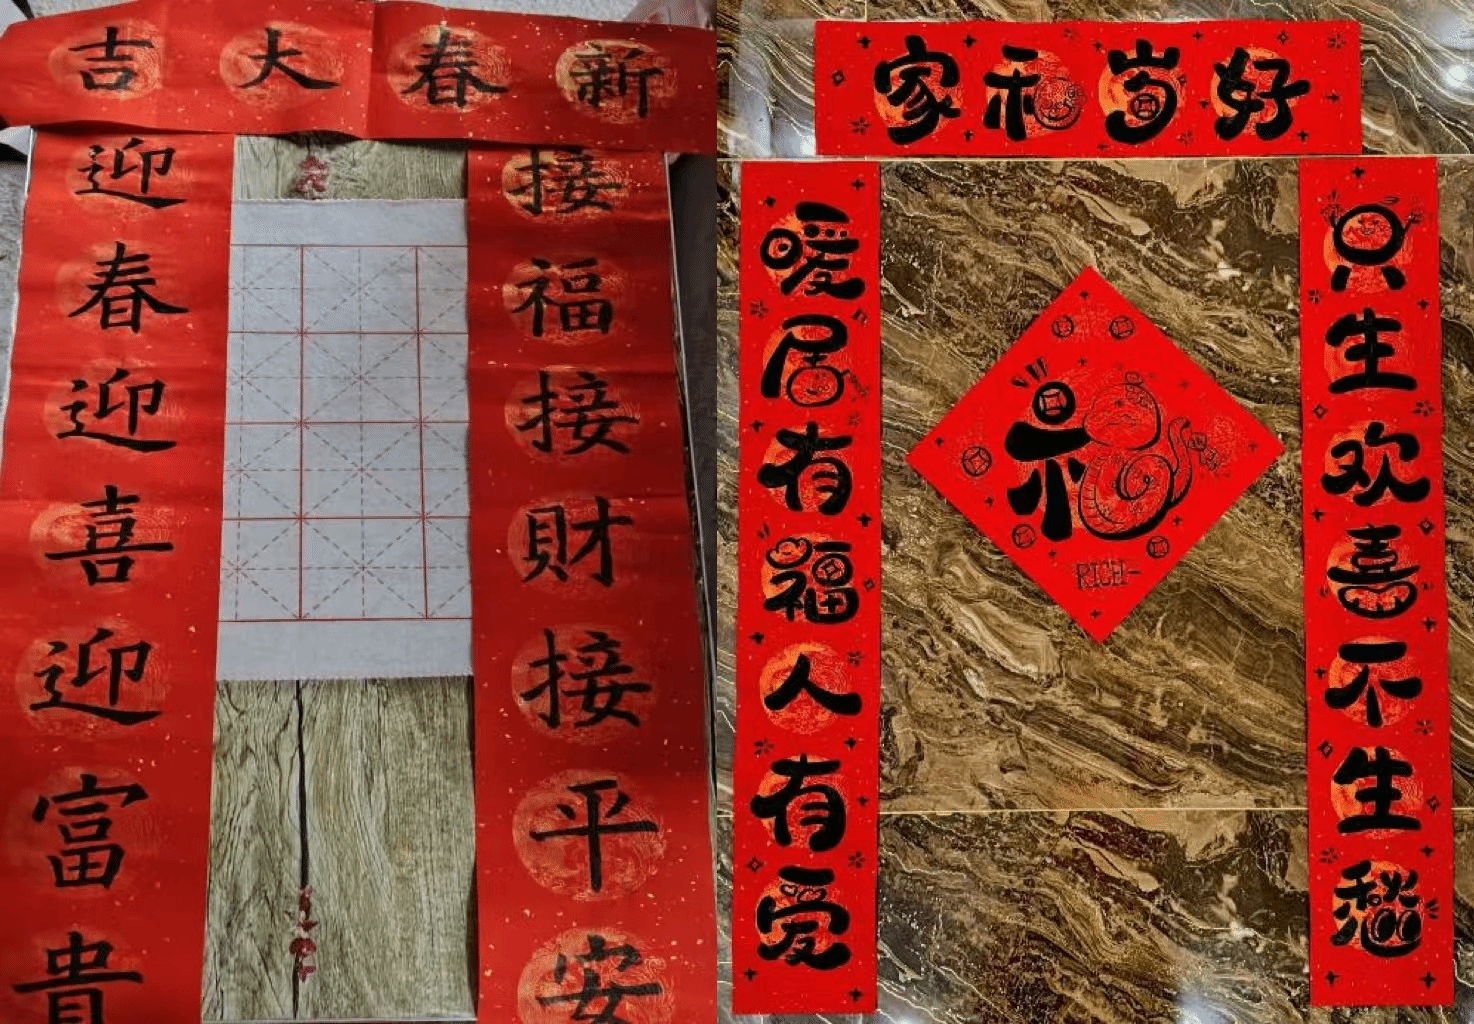 新春大吉
接福接財接平安
迎春迎喜迎富貴
家和岁好
暖居有福人有爱
只生欢喜不生愁
福
RICH